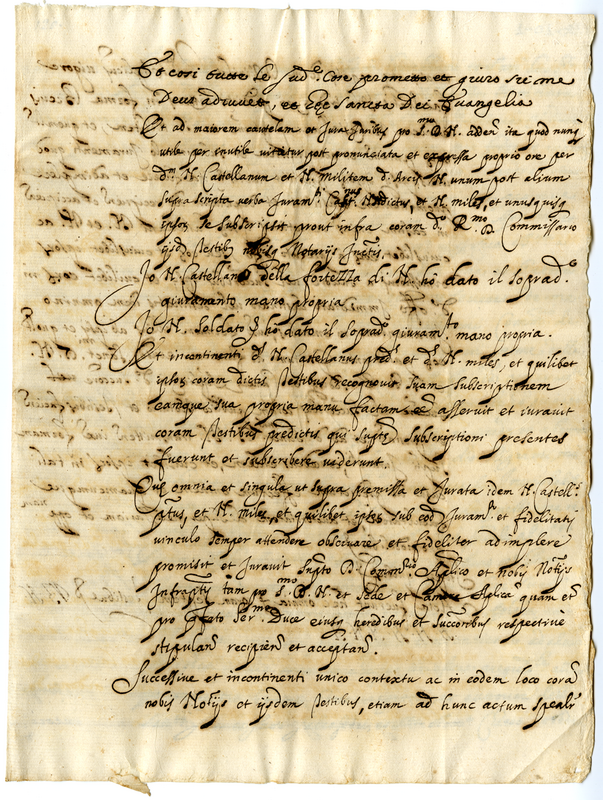 Et cosi tutte le sud.e Cose prometto et giuro sic me
Deus adiuvet, et hęc Sancta Dei Evangelia
Et ad maiorem cautelam et Jura ita quod
utile per inutile vitietur post pronunciata et expressa proprio ore per
d.m N. Castellanum et N. militem d. Arcis N. unum post alium
supra scripta verba Juram.ti N. miles, et unusquisq
ipsor se subscripsit prout infra coram d.o R.mo D. Commissario
ijsd. Testib Notarijs
Io N. Castellano della fortezza di N. hò dato il soprad.o
giuramento mano propria.
Io N. Soldato hò dato il soprad.o giuram.to mano propria.
Et incontinenti d. N. Castellanus pred.s et d.s N. miles, et quilibet
ipsor coram dictis Testibus recognovit suam subscriptionem
eamque sua propria manu factam eē asseruit et iuravit
coram Testibus predictis qui subscriptioni presentes
fuerunt et subscribere viderunt.
Que omnia et singula ut supra premissa et Jurata idem N. Castell.s
et N. miles, et quilibet ipsor sub eod Juram.ti et fidelitatis
vinculo semper attendere observare et fideliter adimplere
promisit et Juravit D. Aplico et nobis Not.ijs
Infrap.tis tam pro S.mo D. N. et Sede et Camera Aplica quam et
pro Ser.mo Duce eiusq heredibus et successoribus respectivè
stipulan recipien et acceptan.
Successive et incontinenti unico contextu ac in eodem loco cora
nobis Not.ijs et ijsdem Testibus, etiam ad hunc actum spealr